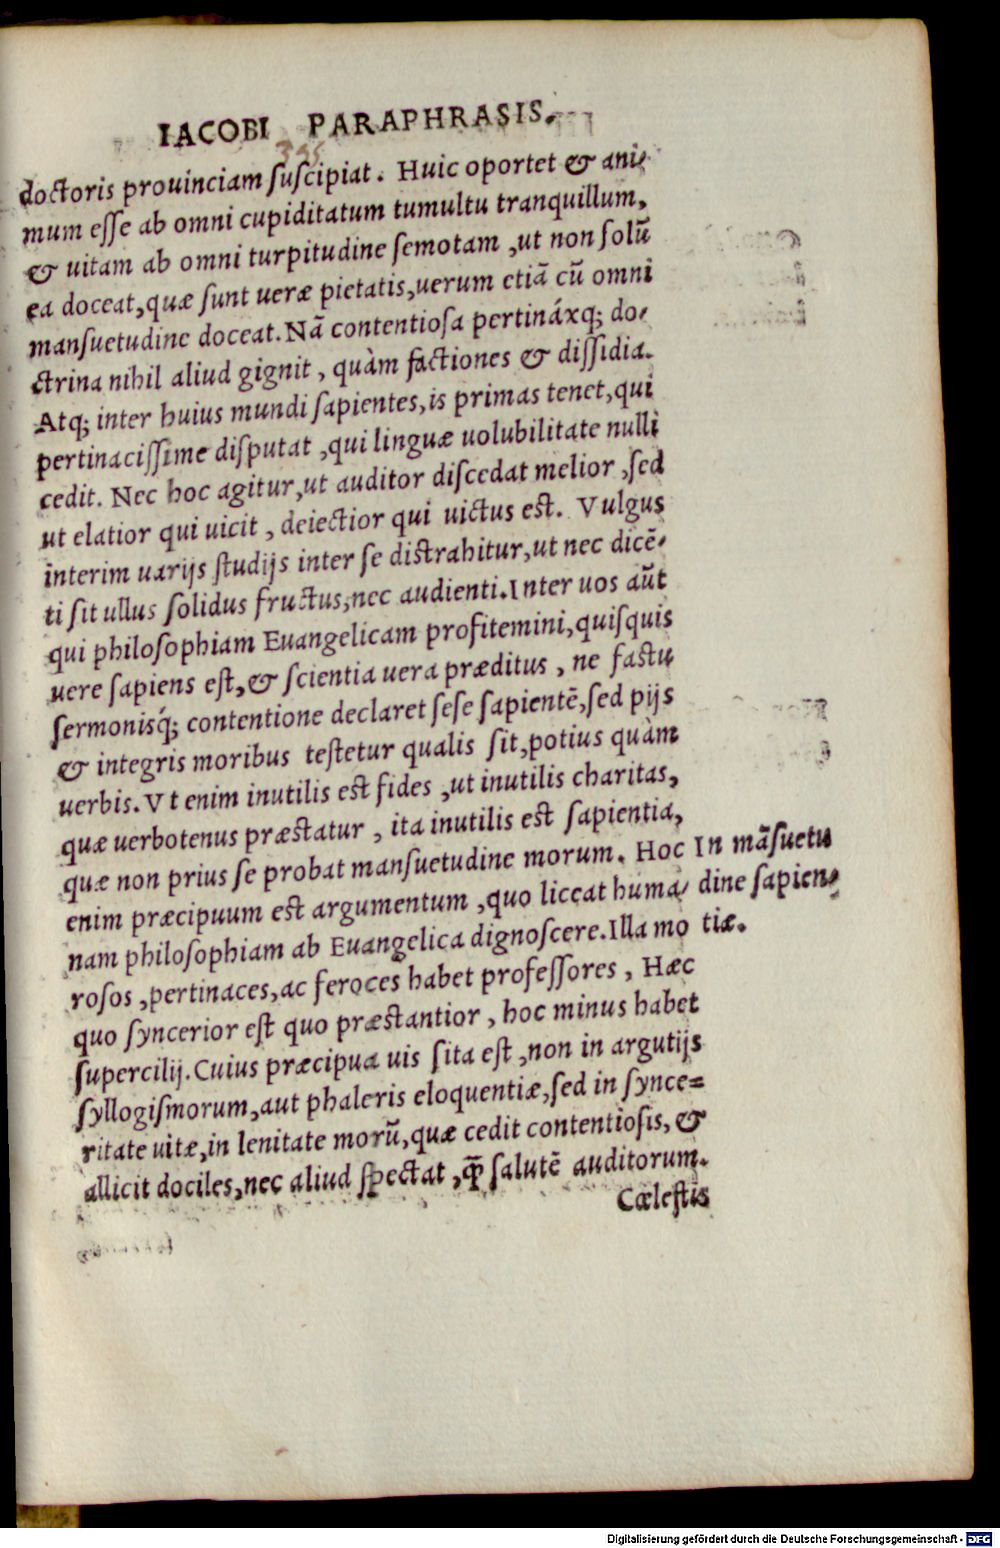 IACOBI PARAPHRASIS.
395
doctoris prouinciam ſuſcipiat. Huic oportet & ani-
mum eſſe ab omni cupiditatum tumultu tranquillum,
& uitam ab omni turpitudine ſemotam, ut non ſolũ
ea doceat, quæ ſunt ueræ pietatis, uerum etiã cũ omni
manſuetudine doceat. Nã contentioſa pertináxq; do-
ctrina nihil aliud gignit, quàm factiones & diſſidia.
Atq; inter huius mundi ſapientes, is primas tenet, qui
pertinaciſſime diſputat, qui linguæ uolubilitate nulli
cedit. Nec hoc agitur, ut auditor diſcedat melior, ſed
ut elatior qui uicit, deiectior qui uictus eſt. Vulgus
interim uarijs ſtudijs inter ſe diſtrahitur, ut nec dicẽ-
ti ſit ullus ſolidus fructus, nec audienti. Inter uos aũt
qui philoſophiam Euangelicam profitemini, quiſquis
uere ſapiens eſt, & ſcientia uera præditus, ne faſtu
ſermonisq́; contentione declaret ſeſe ſapientẽ, ſed pijs
& integris moribus teſtetur qualis ſit, potius quàm
uerbis. Vt enim inutilis eſt fides, ut inutilis charitas,
quæ uerbotenus præſtatur, ita inutilis eſt ſapientia,
quæ non prius ſe probat manſuetudine morum. Hoc
enim præcipuum eſt argumentum, quo liceat huma-
nam philoſophiam ab Euangelica dignoſcere. Illa mo
roſos, pertinaces, ac feroces habet profeſſores, Hæc
quo ſyncerior eſt quo præſtantior, hoc minus habet
ſupercilij. Cuius præcipua uis ſita eſt, non in argutijs
ſyllogiſmorum, aut phaleris eloquentiæ, ſed in ſynce=
ritate uitæ, in lenitate morũ, quæ cedit contentioſis, &
allicit dociles, nec aliud ſpectat, q̃ ſalutẽ auditorum.
Cœleſtis
In mãſuetu
dine ſapien-
tiæ.
Digitalisierung gefördert durch die Deutsche Forschungsgemeinschaft - DFG